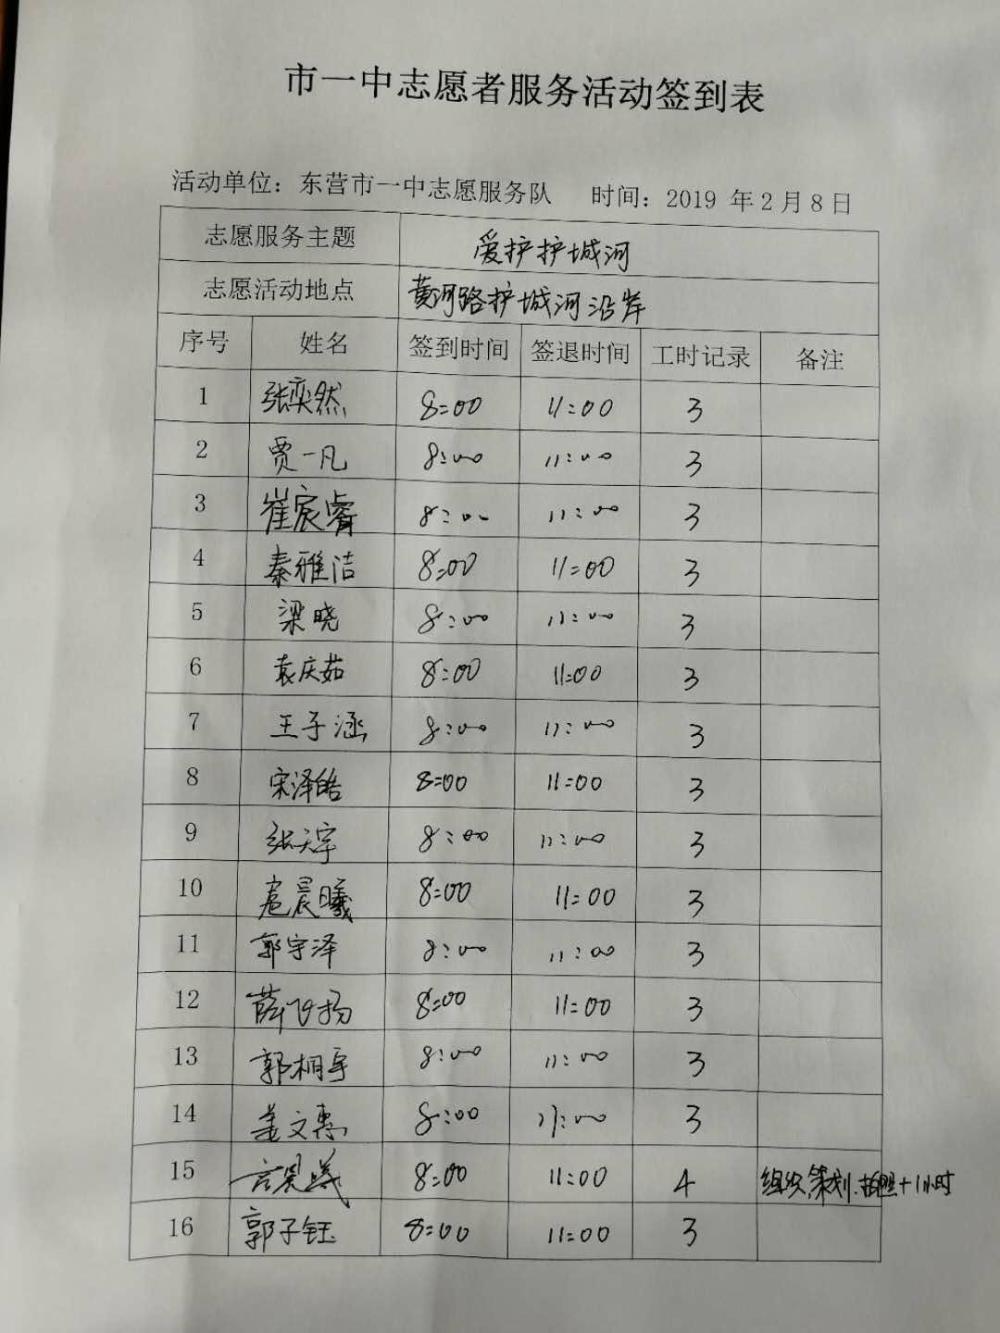 市一中志愿者服务活动签到表
活动单位：东营市一中志愿服务队 时间：2019 年 2 月 8 日
志愿服务主题 爱护护城河
志愿活动地点 黄河路护城河沿岸
序号 姓名 签到时间 签退时间 工时记录 备注
1 张奕然 8:00 11:00 3
2 贾一凡 8:00 11:00 3
3 崔宸睿 8:00 11:00 3
4 秦雅洁 8:00 11:00 3
5 梁晓 8:00 11:00 3
6 袁庆茹 8:00 11:00 3
7 王子涵 8:00 11:00 3
8 宋泽皓 8:00 11:00 3
9 张天宇 8:00 11:00 3
10 扈晨曦 8:00 11:00 3
11 郭宇泽 8:00 11:00 3
12 薛飞扬 8:00 11:00 3
13 郭桐宇 8:00 11:00 3
14 姜文惠 8:00 11:00 3
15 8:00 11:00 4 组织,策划.拍照+1小时
16 郭子钰 8:00 11:00 3